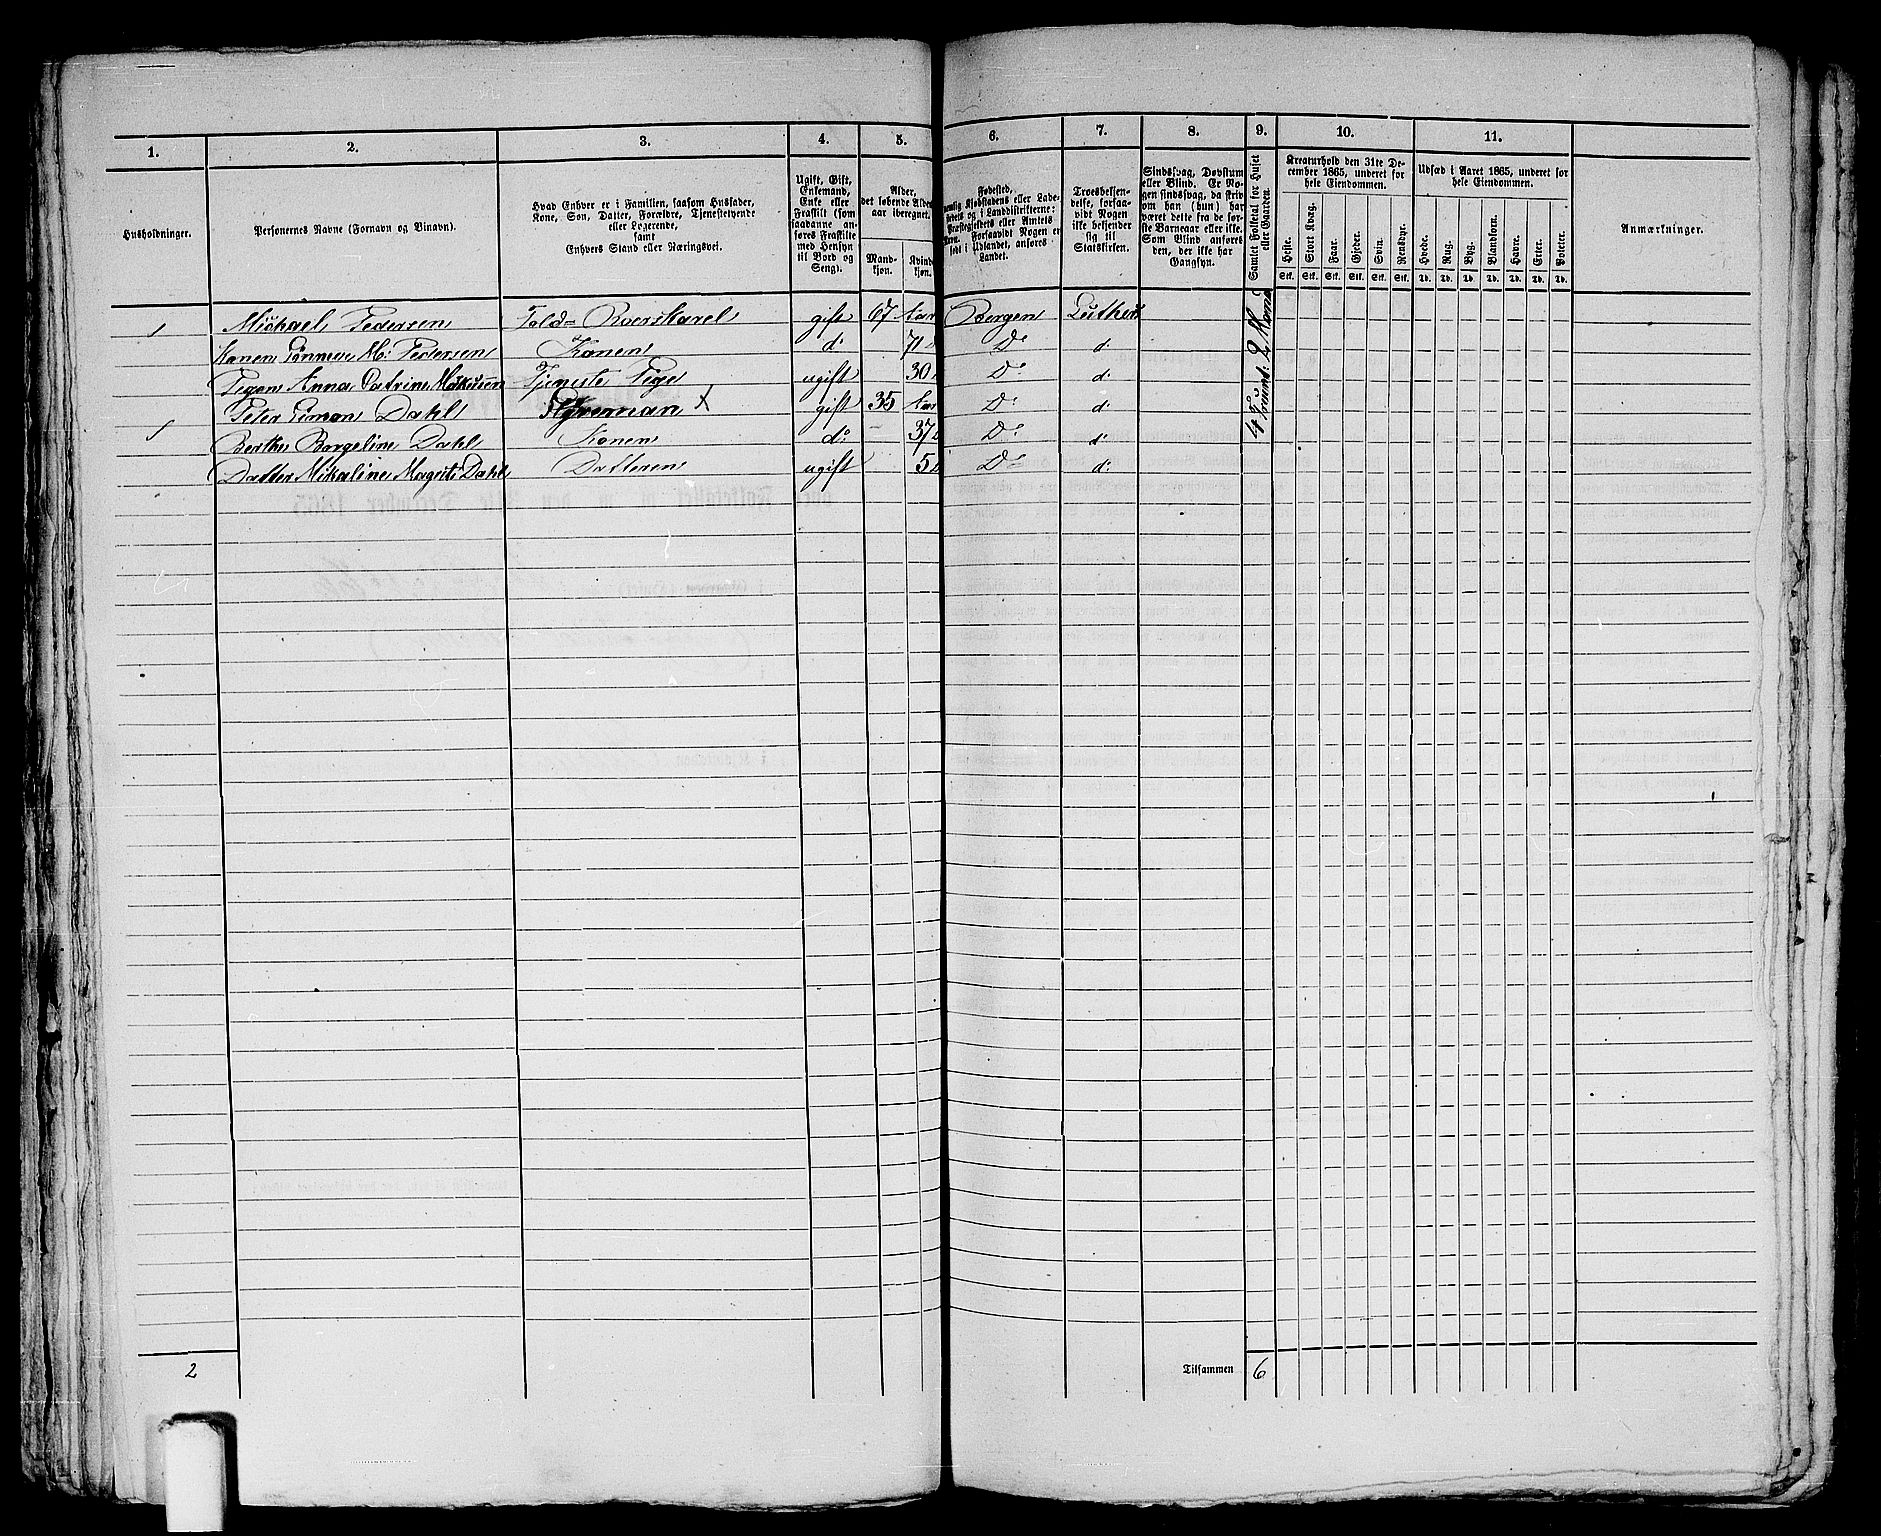 1. 2. 3. 4. 5. 6. 7. 8. 9. 10. 11.
Husholdninger.
Personernes Navne (Fornavn og Binavn).
Hvad Enhver er i Familien, saasom Husfader,
Kone, Søn, Datter, Forældre, Tjenestetyende
eller Logerende,
samt
Enhvers Stand eller Næringsvei.
Ugift, Gift,
Enkemand,
Enke eller
Fraskilt (som
saadanne an-
føres Fraskilte
med Hensyn
til Bord og
Seng).
Alder,
det løbende Alders-
aar iberegnet.
Mand-
kjøn.
Kvinde-
kjøn.
Fødested,
nemlig Kjøbstadens eller Lade-
stedets og i Landdistrikterne:
Præstegjeldets eller Amtets
Navn. Forsaavidt Nogen er
født i Udlandet, anføres
Landet.
Troesbekjen-
delse, forsaa-
vidt Nogen
ikke bekjender
sig til
Statskirken.
Sindssvag, Døvstum
eller Blind. Er No-
gen sindssvag, da skriv
om han (hun) har
været dette fra de før-
ste Barneaar eller ikke.
Som Blind anføres
den, der ikke har
Gangsyn.
Samlet Folketal for Huset
eller Gaarden.
Kreaturhold den 31te De-
cember 1865, underet for
hele Eiendommen.
Heste. Stort Kvæg. Faar. Gjeder. Svin. Rensdyr.
Stk. Stk. Stk. Stk. Stk. Stk.
Udsæd i Aaret 1865, underet for
hele Eiendommen.
Hvede. Rug. Byg. Blandkorn. Havre. Erter. Poteter.
Td. Td. Td. Td. Td. Td. Td.
Anmærkninger.
1 Michael Pedersen Told= Roerskarel gift 67 Bergen Luther
Konen M: Pedersen Konen do 71 Do do
Pigen Anna Catrine Tjeneste Pige ugift 30 Do do
1 Peter Simon Dahl Styreman X gift 35 Do do
Berthe Borgeline Dahl Konen do - 37 Do do
Datter Mikaline Dahl Datteren ugift 5 Do do
4 Fruent: 2 Mænd
2 Tilsammen 6